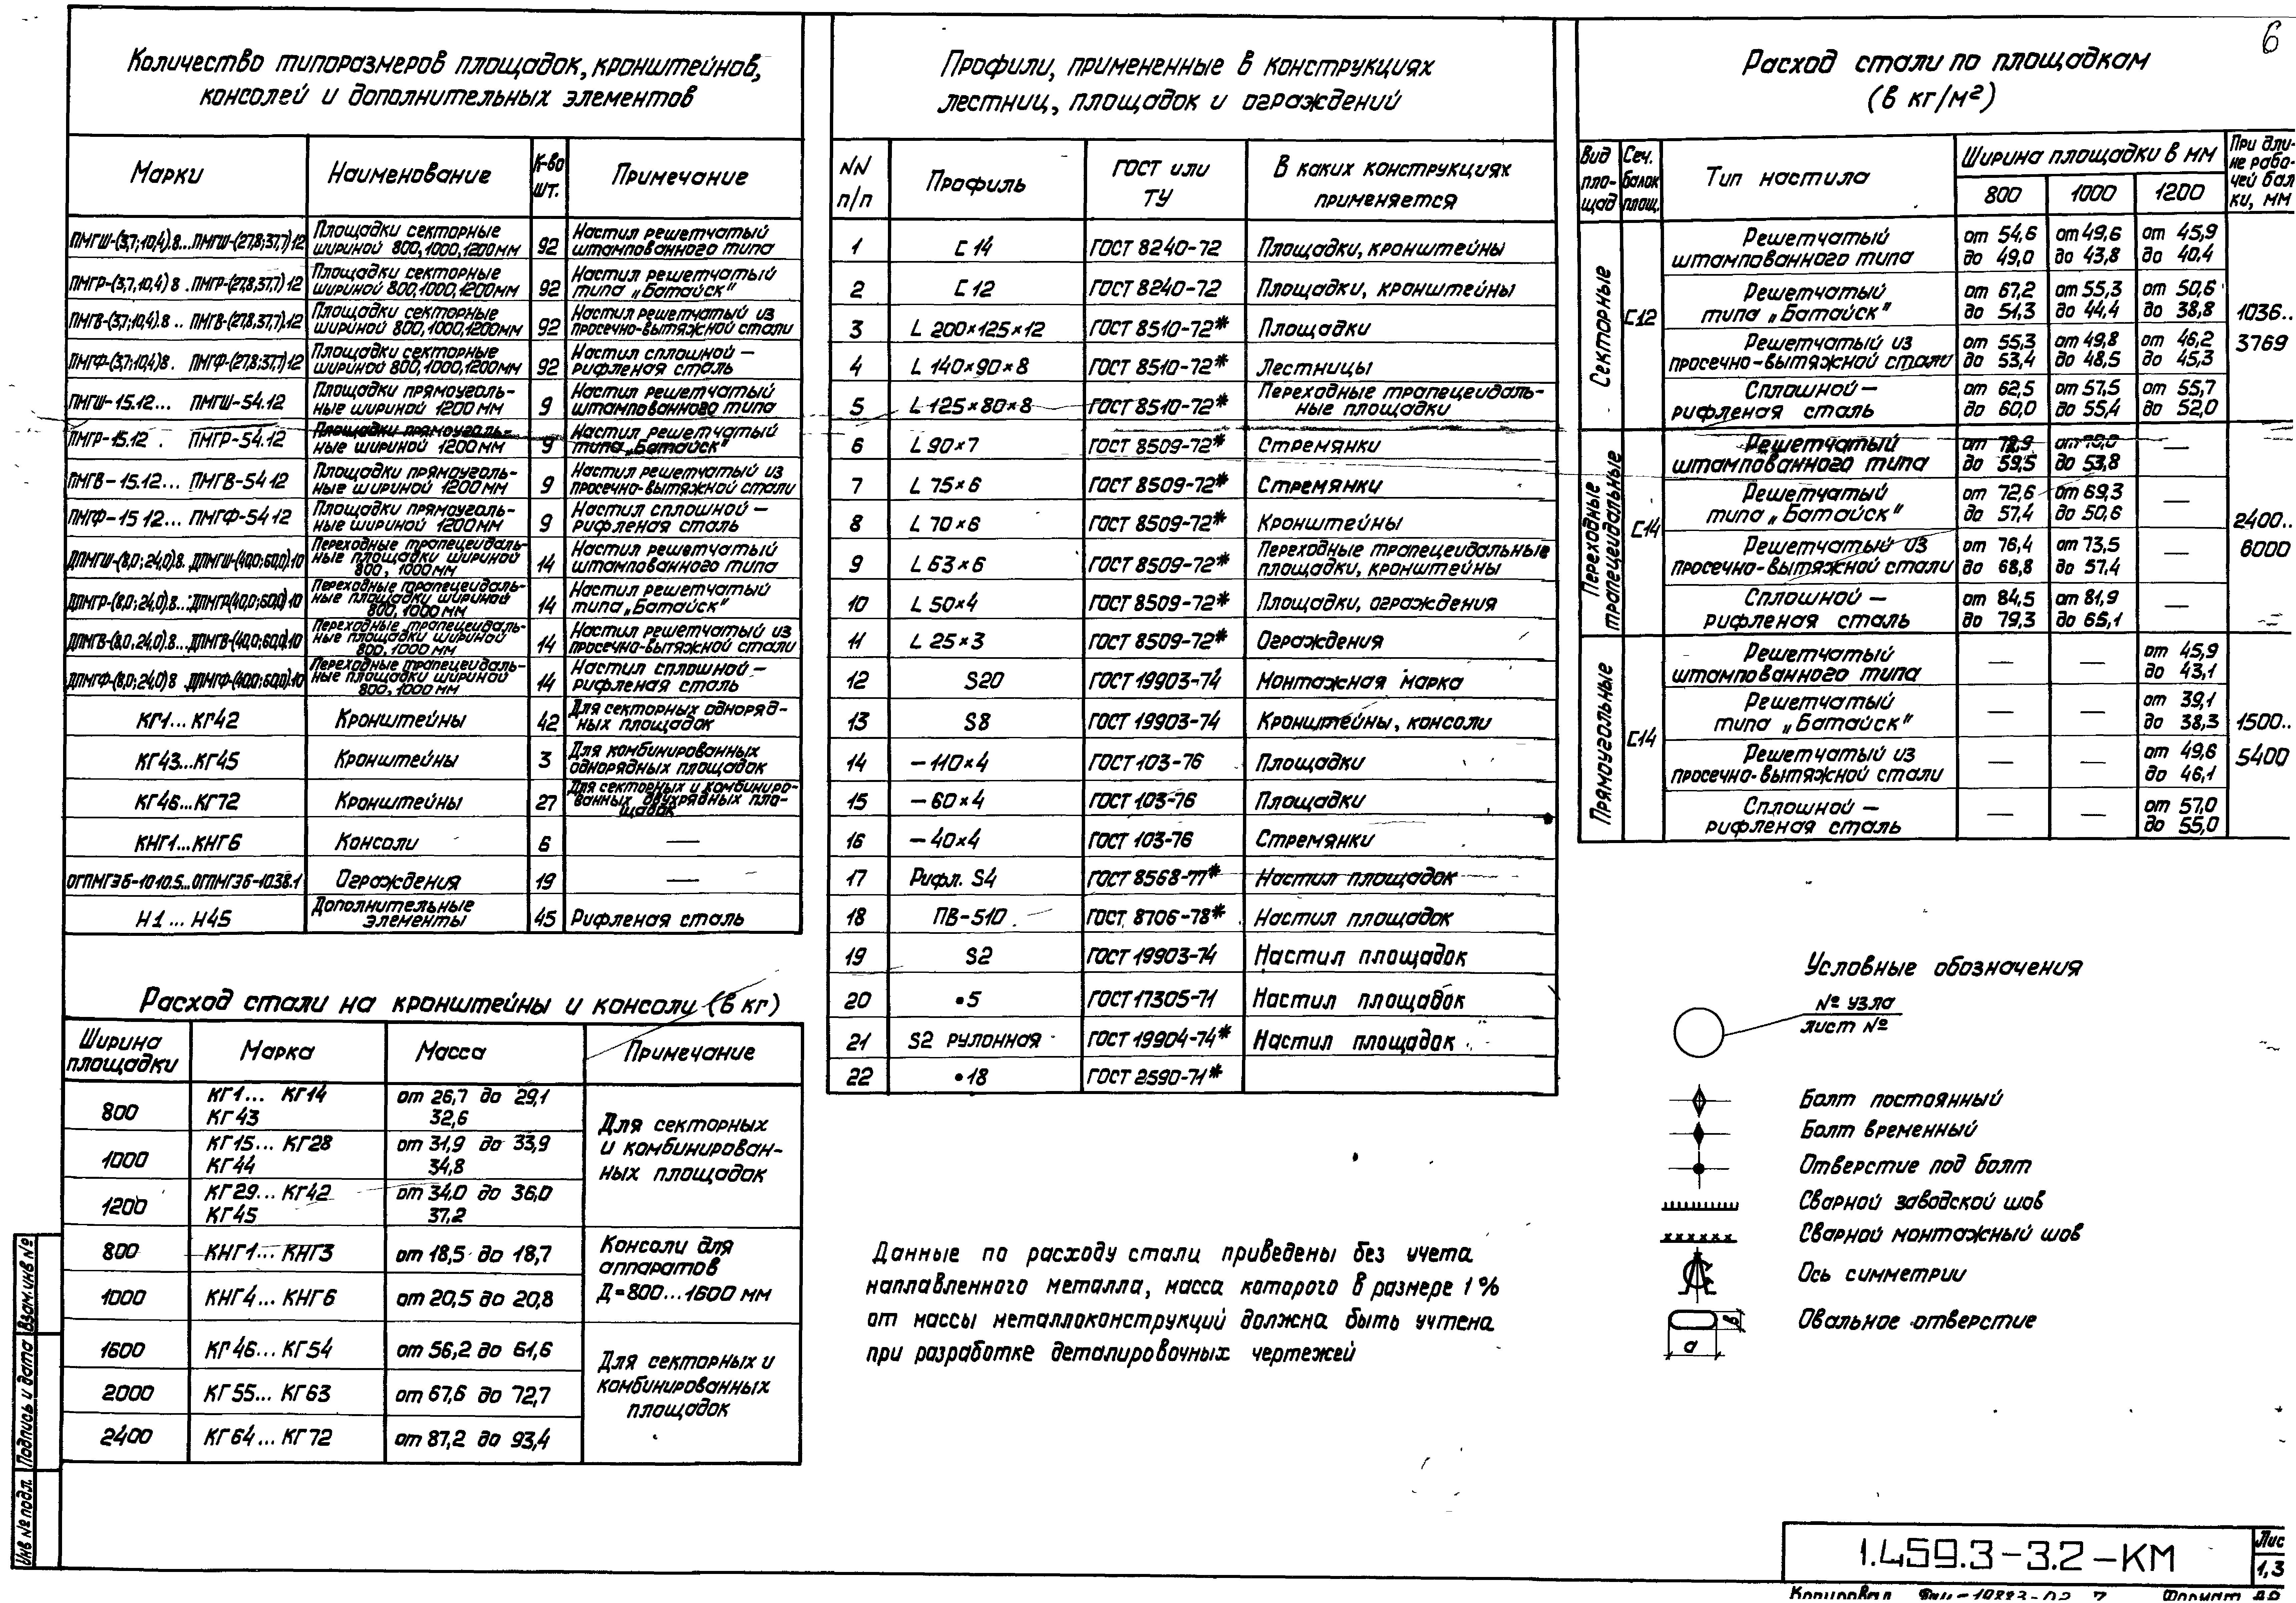 6
Количество типоразмеров площадок, кронштейнов,
консолей и дополнительных элементов
Марки | Наименование | К-во шт. | Примечание
ПМГШ-(3,7;10,4).8...ПМГШ-(27,8;37,7)12 | Площадки секторные шириной 800,1000,1200мм | 92 | Настил решетчатый штампованного типа
ПМГР-(3,7,10,4) 8 . ПМГР-(27,8,37,7) 12 | Площадки секторные шириной 800,1000,1200мм | 92 | Настил решетчатый типа „Батайск"
ПМГВ-(3,7;10,4).8 .. ПМГВ-(27,8,37,7).12 | Площадки секторные шириной 800,1000,1200мм | 92 | Настил решетчатый из просечно-вытяжной стали
ПМГФ-(3,7;10,4)8 . ПМГФ-(27,8;37,7)12 | Площадки секторные шириной 800,1000,1200мм | 92 | Настил сплошной — рифленая сталь
ПМГШ-15.12... ПМГШ-54.12 | Площадки прямоугольные шириной 1200 мм | 9 | Настил решетчатый штампованного типа
ПМГР-15.12 . ПМГР-54.12 | Площадки прямоугольные шириной 1200мм | 9 | Настил решетчатый типа „Батайск"
ПМГВ-15.12... ПМГВ-54 12 | Площадки прямоугольные шириной 1200мм | 9 | Настил решетчатый из просечно-вытяжной стали
ПМГФ-15 12... ПМГФ-54 12 | Площадки прямоугольные шириной 1200мм | 9 | Настил сплошной — рифленая сталь
ДПМГШ-(8,0;24,0).8..ДПМГШ-(40,0;60,0).10 | Переходные трапецеидальные площадки шириной 800, 1000мм | 14 | Настил решетчатый штампованного типа
ДПМГР-(8,0;24,0).8...ДПМГР(40,0;60,0) 10 | Переходные трапецеидальные площадки шириной 800, 1000 мм | 14 | Настил решетчатый типа „Батайск"
ДПМГВ-(8,0,24,0).8...ДПМГВ-(40,0;60,0).10 | Переходные трапецеидальные площадки шириной 800, 1000 мм | 14 | Настил решетчатый из просечно-вытяжной стали
ДПМГФ-(8,0;24,0) 8 .ДПМГФ-(40,0;60,0).10 | Переходные трапецеидальные площадки шириной 800, 1000 мм | 14 | Настил сплошной — рифленая сталь
КГ1... КГ42 | Кронштейны | 42 | Для секторных однорядных площадок
КГ43...КГ45 | Кронштейны | 3 | Для комбинированных однорядных площадок
КГ46...КГ72 | Кронштейны | 27 | Для секторных и комбинированных двухрядных площадок
КНГ1...КНГ6 | Консоли | 6 | —
ОГПМГЭ6-10 10.5...ОГПМГЭ6-10.38.1 | Ограждения | 19 | —
Н1 ... Н45 | Дополнительные элементы | 45 | Рифленая сталь
Расход стали на кронштейны и консоли (в кг)
Ширина площадки | Марка | Масса | Примечание
800 | КГ1... КГ14 | от 26,7 до 29,1
КГ43 | 32,6
1000 | КГ15... КГ28 | от 31,9 до 33,9
КГ44 | 34,8
1200 | КГ29... КГ42 | от 34,0 до 36,0
КГ45 | 37,2
Для секторных и комбинированных площадок
800 | КНГ1... КНГ3 | от 18,5 до 18,7
1000 | КНГ4... КНГ6 | от 20,5 до 20,8
Консоли для аппаратов Д=800...1600 мм
1600 | КГ46... КГ54 | от 56,2 до 61,6
2000 | КГ55... КГ63 | от 67,6 до 72,7
2400 | КГ64... КГ72 | от 87,2 до 93,4
Для секторных и комбинированных площадок
Профили, примененные в конструкциях
лестниц, площадок и ограждений
NN п/п | Профиль | ГОСТ или ТУ | В каких конструкциях применяется
1 | [ 14 | ГОСТ 8240-72 | Площадки, кронштейны
2 | [ 12 | ГОСТ 8240-72 | Площадки, кронштейны
3 | L 200×125×12 | ГОСТ 8510-72* | Площадки
4 | L 140×90×8 | ГОСТ 8510-72* | Лестницы
5 | L 125×80×8 | ГОСТ 8510-72* | Переходные трапецеидальные площадки
6 | L 90×7 | ГОСТ 8509-72* | Стремянки
7 | L 75×6 | ГОСТ 8509-72* | Стремянки
8 | L 70×6 | ГОСТ 8509-72* | Кронштейны
9 | L 63×6 | ГОСТ 8509-72* | Переходные трапецеидальные площадки, кронштейны
10 | L 50×4 | ГОСТ 8509-72* | Площадки, ограждения
11 | L 25×3 | ГОСТ 8509-72* | Ограждения
12 | S20 | ГОСТ 19903-74 | Монтажная марка
13 | S8 | ГОСТ 19903-74 | Кронштейны, консоли
14 | — 110×4 | ГОСТ 103-76 | Площадки
15 | — 60×4 | ГОСТ 103-76 | Площадки
16 | — 40×4 | ГОСТ 103-76 | Стремянки
17 | Рифл. S4 | ГОСТ 8568-77* | Настил площадок
18 | ПВ-510 | ГОСТ 8706-78* | Настил площадок
19 | S2 | ГОСТ 19903-74 | Настил площадок
20 | •5 | ГОСТ 17305-71 | Настил площадок
21 | S2 рулонная | ГОСТ 19904-74* | Настил площадок
22 | •18 | ГОСТ 2590-71*
Данные по расходу стали приведены без учета
наплавленного металла, масса которого в размере 1%
от массы металлоконструкций должна быть учтена
при разработке деталировочных чертежей
Расход стали по площадкам
(в кг/м²)
Вид площад | Сеч. балок площ. | Тип настила | Ширина площадки в мм | При длине рабочей балки, мм
800 | 1000 | 1200
Секторные | [12 | 1036.. 3769
Решетчатый штампованного типа | от 54,6 до 49,0 | от 49,6 до 43,8 | от 45,9 до 40,4
Решетчатый типа „Батайск" | от 67,2 до 51,3 | от 55,3 до 44,4 | от 50,6 до 38,8
Решетчатый из просечно-вытяжной стали | от 55,3 до 53,4 | от 49,8 до 48,5 | от 46,2 до 45,3
Сплошной — рифленая сталь | от 62,5 до 60,0 | от 57,5 до 55,4 | от 55,7 до 52,0
Переходные трапецеидальные | [14 | 2400.. 6000
Решетчатый штампованного типа | от до 59,5 | от до 53,8 | —
Решетчатый типа „Батайск" | от 72,6 до 57,4 | от 69,3 до 50,6 | —
Решетчатый из просечно-вытяжной стали | от 76,4 до 68,8 | от 73,5 до 57,4 | —
Сплошной — рифленая сталь | от 84,5 до 79,3 | от 81,9 до 65,1 | —
Прямоугольные | [14 | 1500.. 5400
Решетчатый штампованного типа | — | — | от 45,9 до 43,1
Решетчатый типа „Батайск" | — | — | от 39,1 до 38,3
Решетчатый из просечно-вытяжной стали | — | — | от 49,6 до 46,1
Сплошной — рифленая сталь | — | — | от 57,0 до 55,0
Условные обозначения
№ узла
лист №
Болт постоянный
Болт временный
Отверстие под болт
Сварной заводской шов
Сварной монтажный шов
Ось симметрии
Овальное отверстие
а
в
Инв № подл. | Подпись и дата | Взам. инв №
1.459.3-3.2-КМ
Лис
1,3
Копировал
19883-02 7
Формат